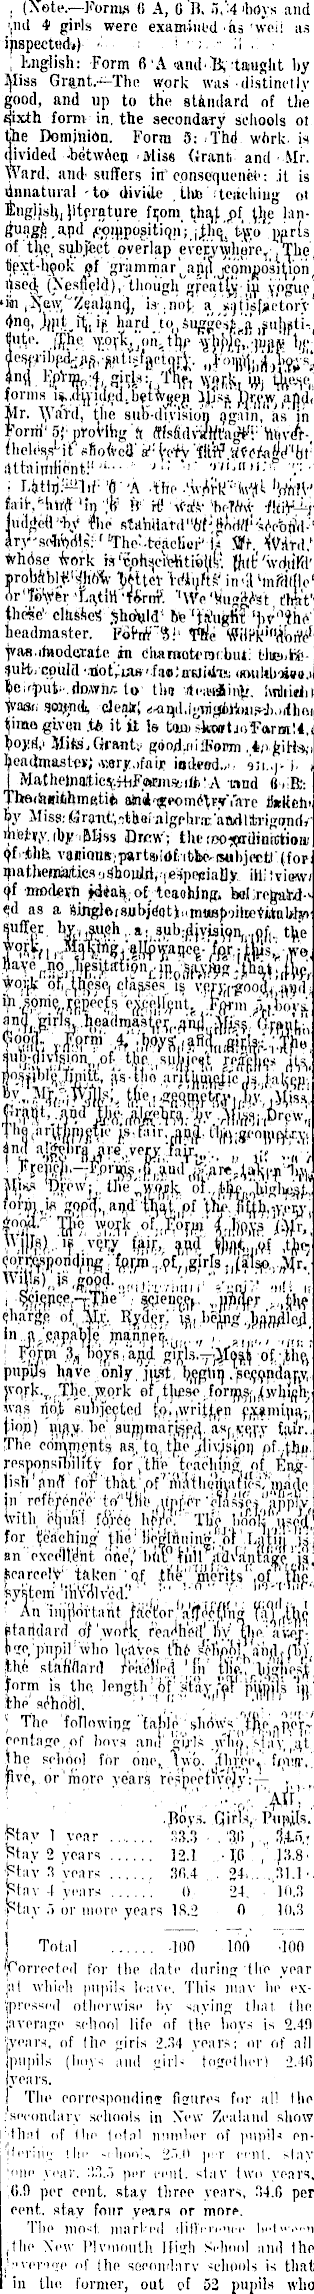 (Note.—Forms 6 A, 6 B, 5, 4 boys and
and 4 girls were examined as well as
inspected.)
English: Form 6 A and B, taught by
Miss Grant.—The work was distinctly
good, and up to the standard of the
sixth form in the secondary schools of
the Dominion. Form 5: The work is
divided between Miss Grant and Mr.
Ward, and suffers in consequence: it is
unnatural to divide the teaching of
English literature from that of the lan-
guage and composition; the two parts
of the subject overlap everywhere. The
text-book of grammar and composition
used (Nesfield), though greatly in vogue
in New Zealand, is not a satisfactory
one, but it is hard to suggest a substi-
tute. The work on the whole may be
described as satisfactory. Form 4 boys
and Form 4 girls: The work in these
forms is divided between Miss Drew and
Mr. Ward, the sub-division again, as in
Form 5, proving a disadvantage; never-
theless it showed a very fair average of
attainment.
Latin.—In 6 A the work was only
fair, and in 6 B it was below fair—
judged by the standard of good second-
ary schools. The teacher is Mr. Ward,
whose work is conscientious, but would
probably show better results in a middle
or lower Latin form. We suggest that
these classes should be taught by the
headmaster. Form 5: The work done
was moderate in character, but the re-
sult could not, as far as
be put down to the teaching, which
was sound, clear, and vigorous;
time given to it is too short. Form 4,
boys, Miss Grant, good; Form 4, girls,
headmaster, very fair indeed.
Mathematics.—Forms 6 A and 6 B:
The arithmetic and geometry are taken
by Miss Grant, the algebra and trigono-
metry by Miss Drew; the co-ordination
of the various parts of the subject (for
mathematics should, especially in view
of modern ideas of teaching, be regard-
ed as a single subject) must inevitably
suffer by such a sub-division of the
work. Making allowance for this, we
have no hesitation in saying that the
work of these classes is very good, and
in some repects excellent. Form 5, boys
and girls, headmaster and Miss Grant:
Good. Form 4, boys and girls: The
sub-division of the subject reaches its
possible limit, as the arithmetic is taken
by Mr. Wills, the geometry by Miss
Grant, and the algebra by Miss Drew.
The arithmetic is fair, and the geometry
and algebra are very fair.
French.—Forms 6 and 5 are taken by
Miss Drew; the work of the highest
form is good, and that of the fifth very
good. The work of Form 4 boys (Mr.
Wills) is very fair, and that of the
corresponding form of girls (also Mr.
Wills) is good.
Science.—The science, under the
charge of Mr. Ryder, is being handled
in a capable manner.
Form 3, boys and girls.—Most of the
pupils have only just begun secondary
work. The work of these forms (which
was not subjected to written examina-
tion) may be summarised as very fair.
The comments as to the division of the
responsibility for the teaching of Eng-
lish and for that of mathematics made
in reference to the upper classes apply
with equal force here. The book used
for teaching the beginning of Latin is
an excellent one, but full advantage is
scarcely taken of the merits of the
system involved.
An important factor affecting (a) the
standard of work reached by the aver-
age pupil who leaves the school and (b)
the standard reached in the highest
form is the length of stay of pupils in
the school.
The following table shows the per-
centage of boys and girls who stay at
the school for one, two, three, four,
five, or more years respectively:—
All
Boys. Girls. Pupils.
Stay 1 year ...... 33.3 36 34.5
Stay 2 years ...... 12.1 16 13.8
Stay 3 years ...... 36.4 24 31.1
Stay 4 years ...... 0 24 10.3
Stay 5 or more years 18.2 0 10.3
Total ...... 100 100 100
Corrected for the date during the year
at which pupils leave. This may be ex-
pressed otherwise by saying that the
average school life of the boys is 2.49
years, of the girls 2.34 years; or of all
pupils (boys and girls together) 2.46
years.
The corresponding figures for all the
secondary schools in New Zealand show
that of the total number of pupils en-
tering the schools 25.0 per cent. stay
one year, 33.5 per cent. stay two years,
6.9 per cent. stay three years, 34.6 per
cent. stay four years or more.
The most marked difference between
the New Plymouth High School and the
average of the secondary schools is that
in the former, out of 52 pupils who